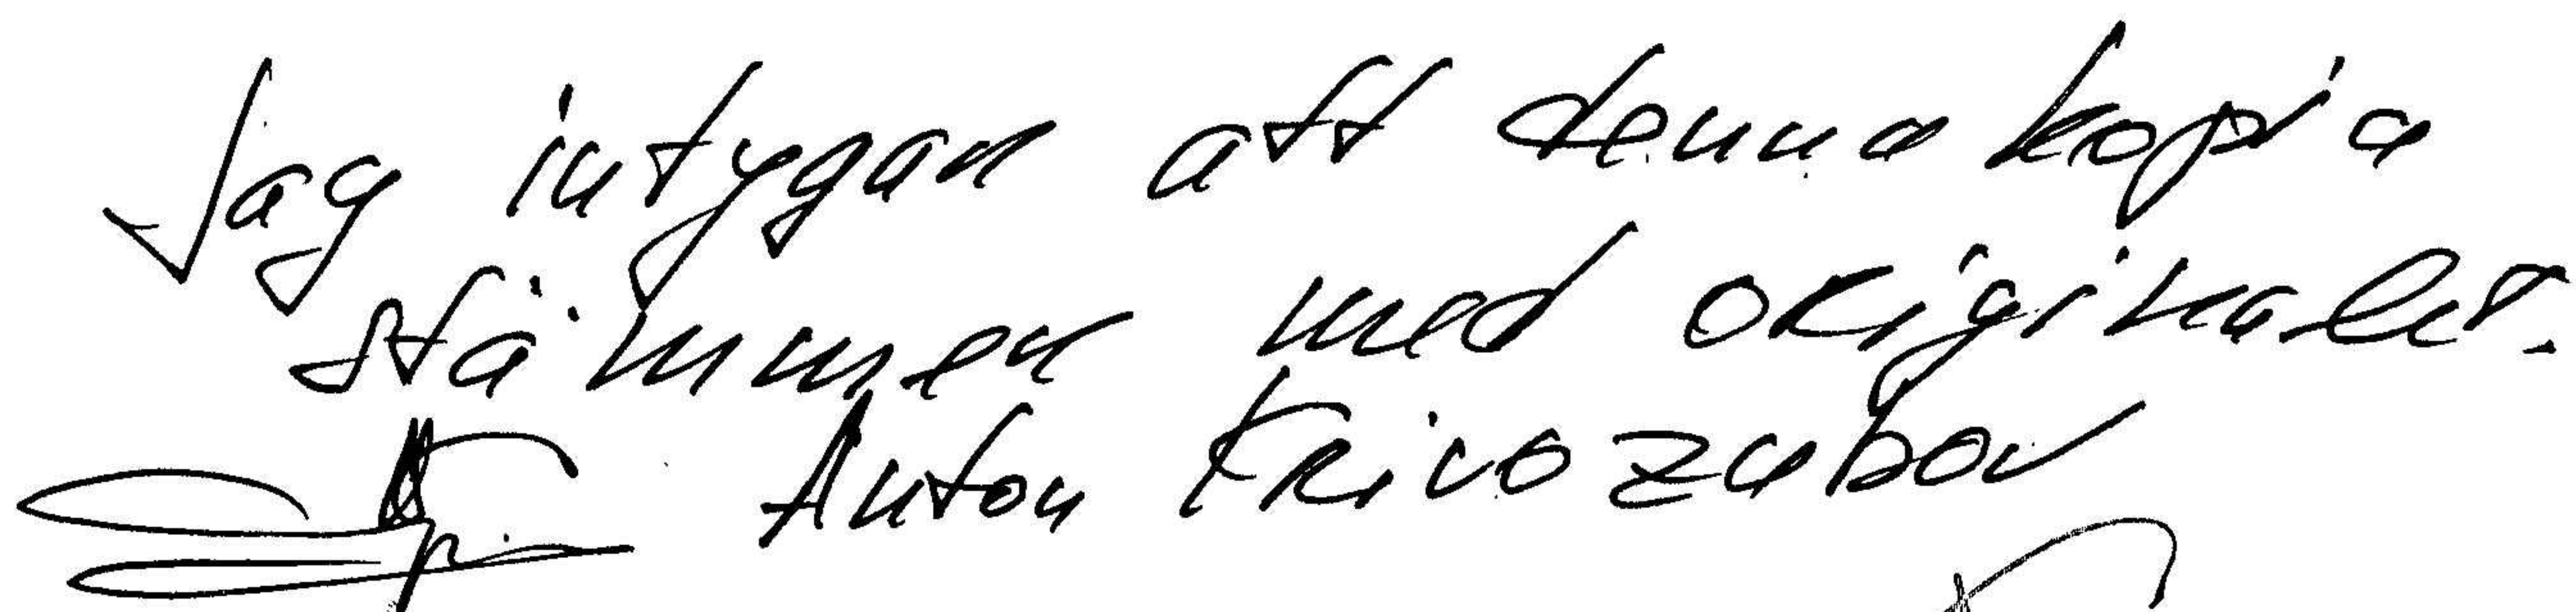 Jag intygar att denna kopia
stämmer med originalet.
Anton Krivozubov